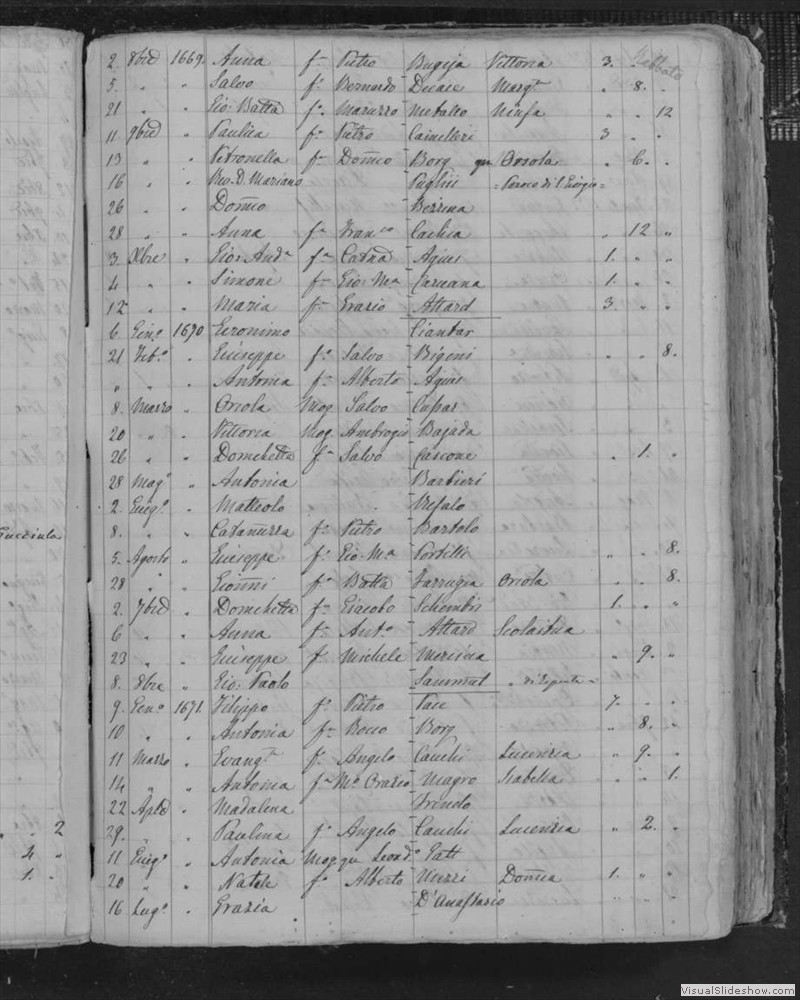 Zebbato
2. 8bre 1669. Anna f.a Pietro Bugeja Vittoria 3. . .
5. " " Salvo f.o Bernardo Ducasc Marg.ta . 8. .
21 " " Gio: Batta f.o Maruzzo Metallo Ninfa . . 12
11 9bre . Paulica f.a Pietro Camelleri 3 . .
13 . . Petronella f.a Dom̃co Borg qu Orsola . 6. .
16 . . Rev. D. Mariano Puglii = Paroco di S. Giorgio =
26 . . Dom̃co Bezzina
28 . . Anna f.a Fran.co Cachia " 12 "
3 Xbre . Gio: And.a f.o Catñd Agius 1. . "
4 . . Simone f.o Gio: M.a Caruana 1. . .
12 . " Maria f.a Grazio Attard 3. . .
6 Gen.o 1670 Geronimo Ciantar
21 Feb.o . Giuseppe f.o Salvo Bigeni . . 8.
" " . Antonia f.a Alberto Agius
8. Marzo . Oriola Mog. Salvo Cuscar
20 . . Vittoria Mog. Ambrogio Bajada
26 " . Domchetta f.a Salvo Cascone . 1. .
28 Mag.o . Antonia Barbieri
2. Giug.o . Matteolo Grefalo
8. . . Catañuzza f.a Pietro Bartolo
5. Agosto . Giuseppe f.o Gio: M.a Portelli " . 8.
28 " . Gioñni f.o Batta Farrugia Oriola . . 8.
2. 7bre . Domchetta f.a Giacobo Schembri 1. . "
6 . . Anna f.a Ant.o Attard Scolastica
23 " . Giuseppe f. Michele Mercieca " 9. "
8. 8bre " Gio: Paolo Sammut
9. Gen.o 1671. Filippo f.o Pietro Pace 7. . .
10 . . Antonia f.a Rocco Borg " 8. .
11 Marzo . Evang.ta f.a Angelo Cauchi Lucrezia " 9. .
14 " " Antonia f.a M.o Orazio Magro Isabella . . 1.
22 Aple . Madalena Trindo
29. . . Paulina f.a Angelo Cauchi Lucrezia " 2. .
11 Giug.o . Antonia Mog qu Leond.o Gatt
20 " . Natale f.o Alberto Muzzi Dom̃ca 1. . .
16 Lug.o . Grazia D'Anastasio
2
4 "
1. .
VisualSlideshow.com